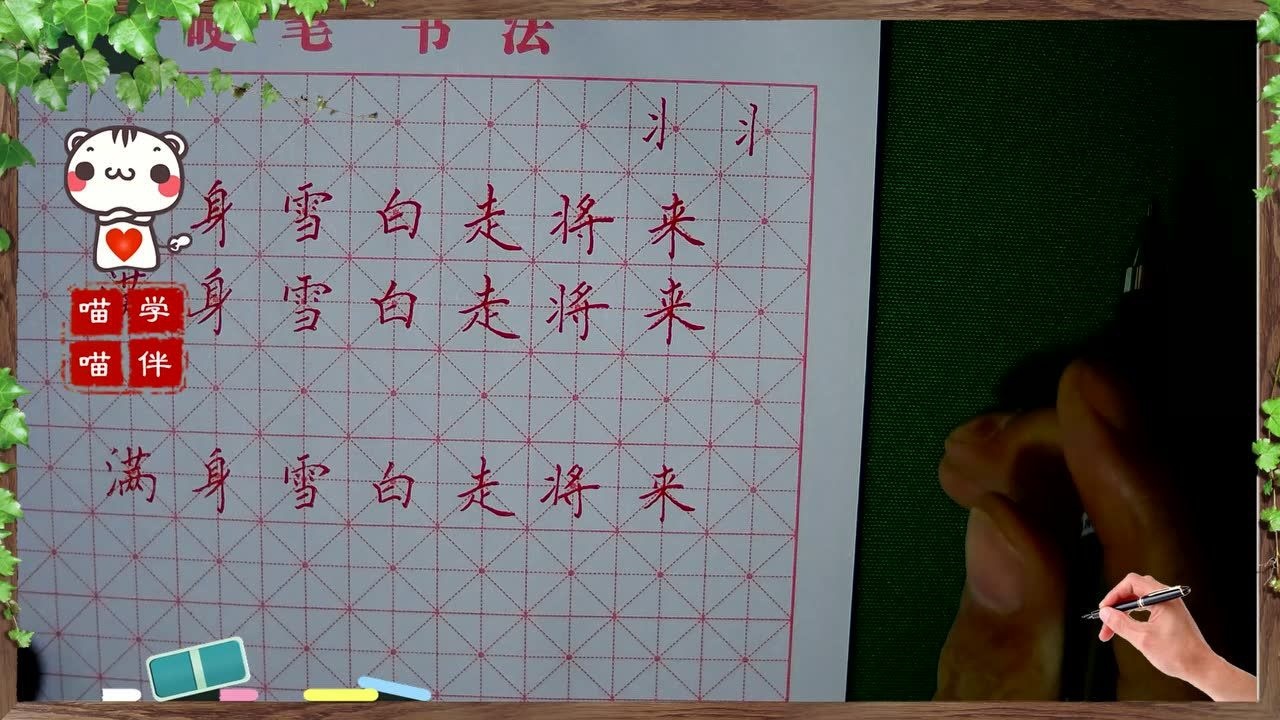 硬笔书法
丬丬
身雪白走将来
满身雪白走将来
喵学
喵伴
满身雪白走将来